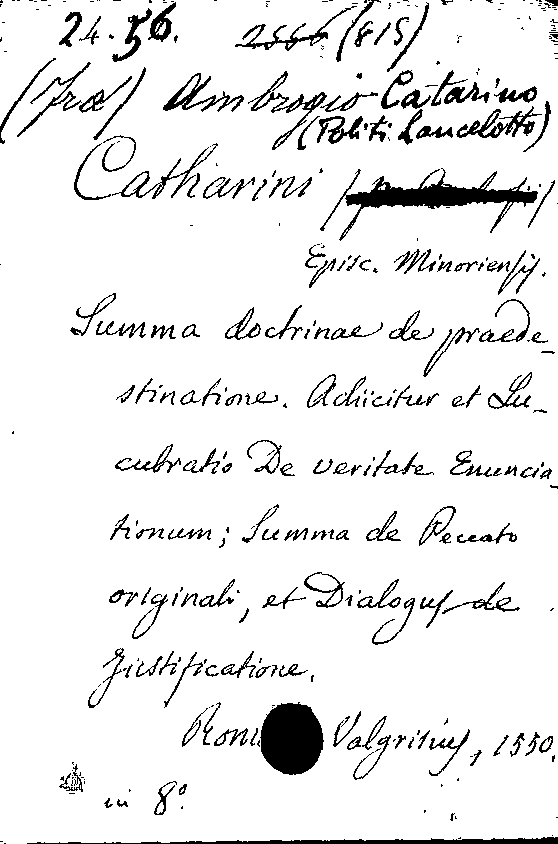 24.56. 2556 (815)
(Fra) Ambrogio Catarino
(Politi Lancelotto)
Catharini
Episc. Minoriensis.
Summa doctrinae de praede-
stinatione. Adiicitur et Lu-
cubratio De veritate Enuncia-
tionum; Summa de Peccato
originali, et Dialogus de
Justificatione.
Rom Valgrisius, 1550.
in 8°